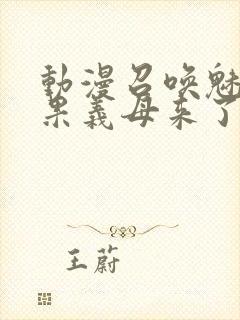 動漫召喚魅
果義母來了
王蔚